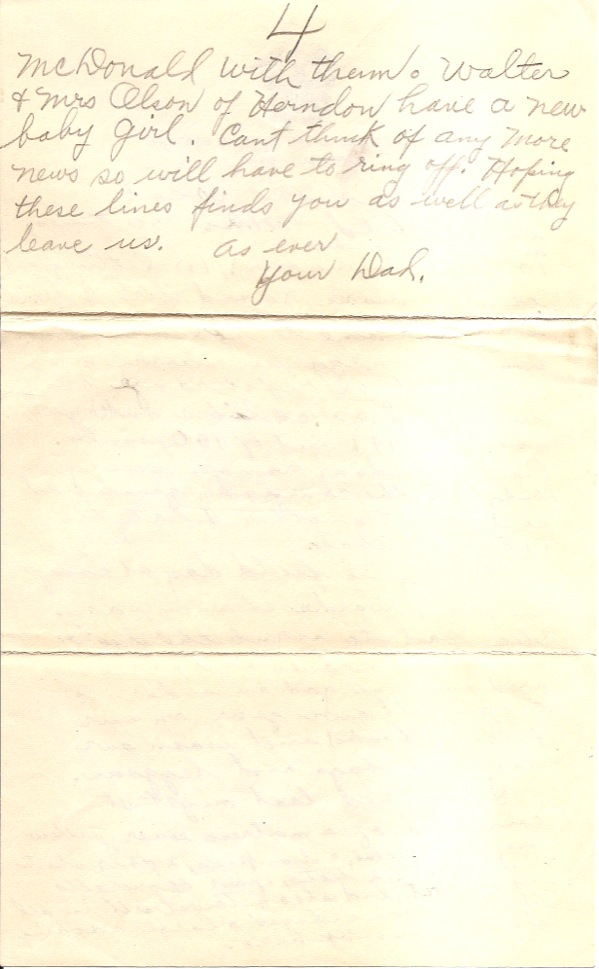 4
McDonald with them. Walter
& Mrs Olson of Herndon have a new
baby girl. Cant think of any more
news so will have to ring off. Hoping
these lines finds you as well as they
leave us. As ever
Your Dad.